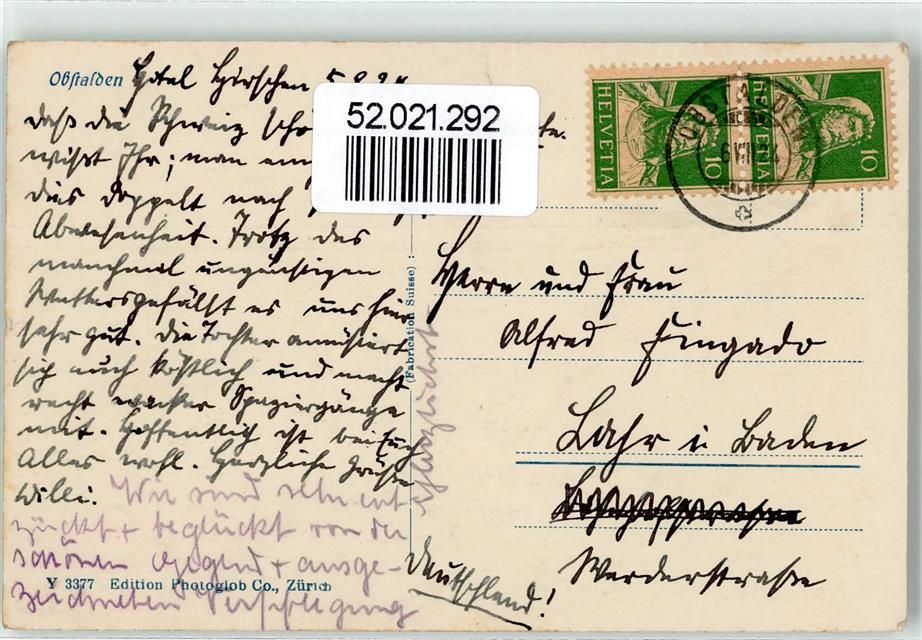 Obstalden Hotel Hirschen 5.8.24
daß die Schweiz
wißt Ihr; man
dies doppelt nach
Abwesenheit. Trotz des
manchmal ungünstigen
Wetters gefällt es uns hier
sehr gut. Die Tochter amüsiert
sich auch köstlich und macht
recht wacker Spaziergänge
mit. Hoffentlich ist bei Euch
Alles wohl. Herzliche Grüße
Willi. Wir sind sehr ent
zückt + beglückt von der
schönen Gegend + ausge-
zeichneten Verpflegung
Y 3377 Edition Photoglob Co., Zürich
(Fabrication Suisse) :
52.021.292
HELVETIA 10
HELVETIA 10
OBSTALDEN
Herrn und Frau
Alfred Fingado
Lahr i Baden
Werderstraße
Deutschland!